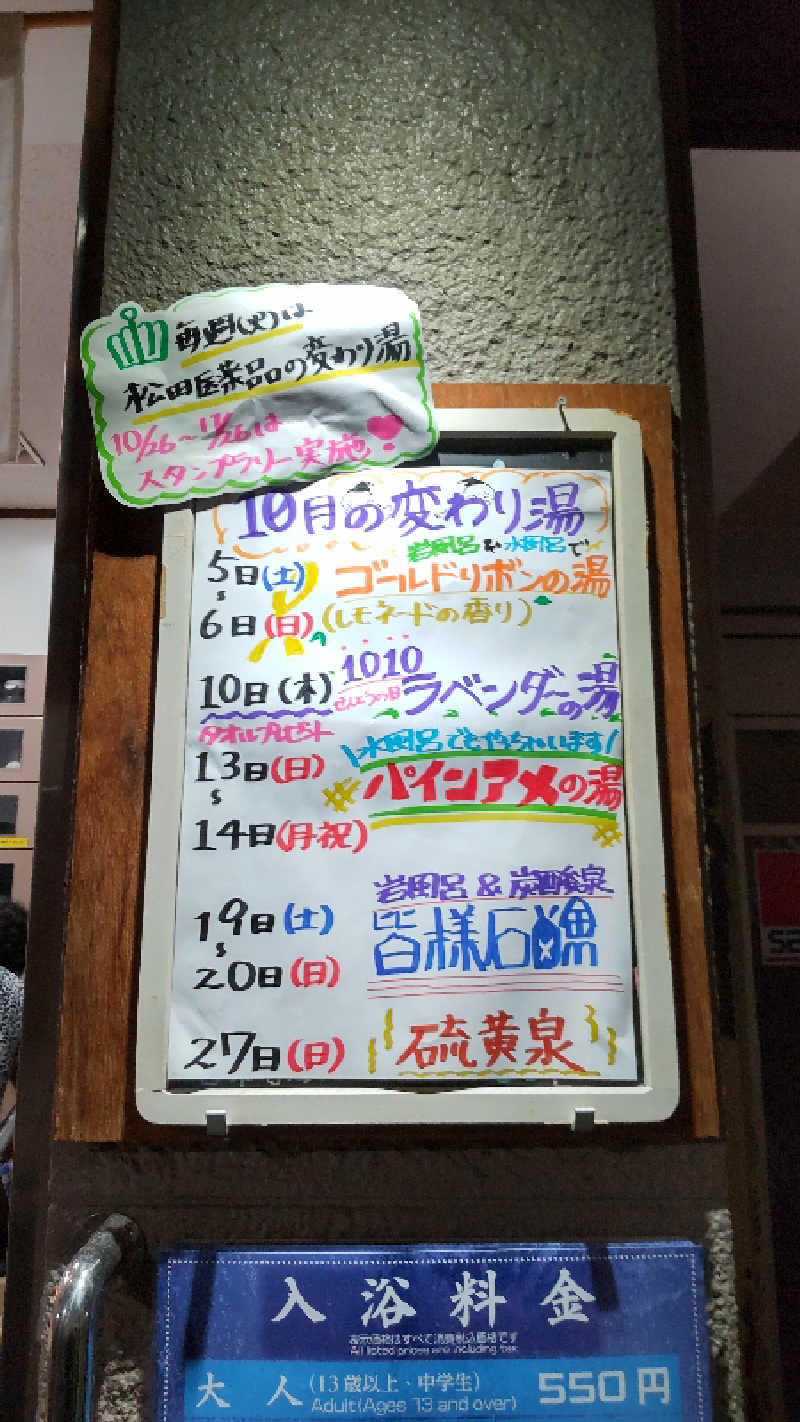 毎週(火)は
松田医薬品の変わり湯
10/26～11/26は
スタンプラリー実施!
10月の変わり湯
岩風呂&水風呂で
5日(土)
ゴールドリボンの湯
6日(日)
(レモネードの香り)
1010
10日(木)
せんとうの日
ラベンダーの湯
タオルプレゼント
\水風呂でもやっちゃいます/
13日(日)
パインアメの湯
14日(月祝)
岩風呂&炭酸泉
19日(土)
皆様石鹸
20日(日)
27日(日)
硫黄泉
入浴料金
表示価格はすべて消費税込価格です
All listed prices are including tax
大人(13歳以上、中学生)
Adult(Ages 13 and over)
550円